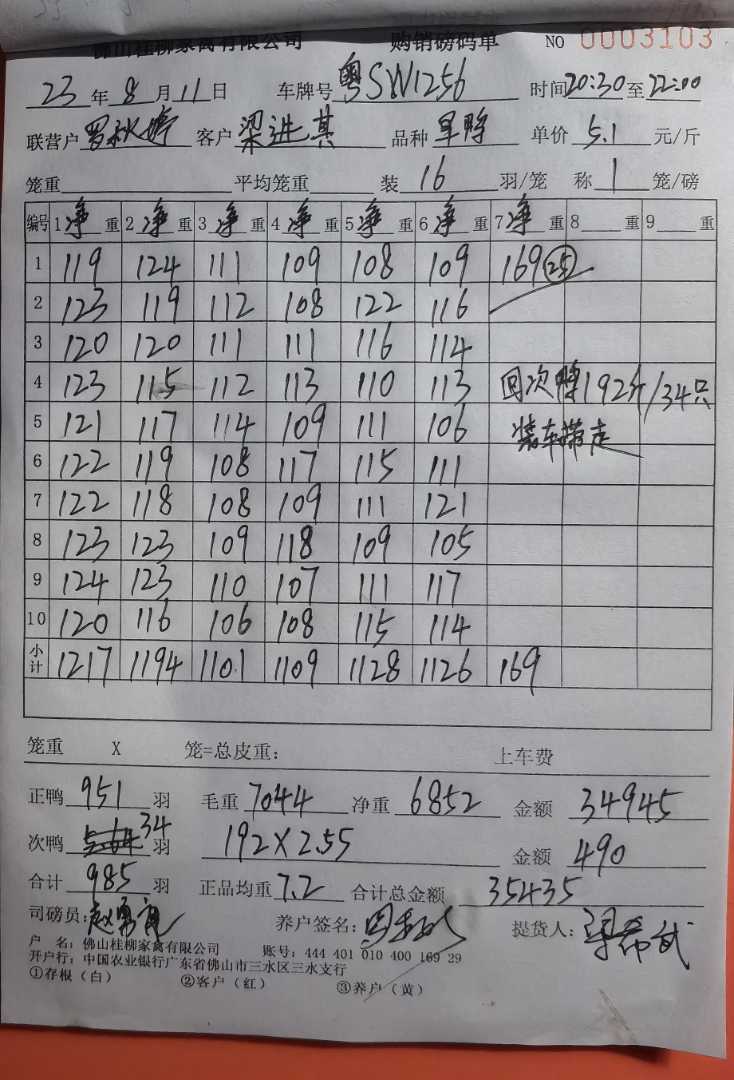 佛山桂柳家禽有限公司 购销磅码单 NO 0003103
23 年 8 月 11 日 车牌号 粤SW1256 时间 20:30 至 22:00
联营户 罗秋婷 客户 梁进其 品种 旱鸭 单价 5.1 元/斤
笼重 平均笼重 装 16 羽/笼 称 1 笼/磅
编号 1 净 重 2 净 重 3 净 重 4 净 重 5 净 重 6 净 重 7 净 重 8 重 9 重
1 119 124 111 109 108 109 169 25
2 123 119 112 108 122 116
3 120 120 111 111 116 114
4 123 115 112 113 110 113 回次鸭192斤/34只
5 121 117 114 109 111 106 装车带走
6 122 119 108 117 115 111
7 122 118 108 109 111 121
8 123 123 109 118 109 105
9 124 123 110 107 111 117
10 120 116 106 108 115 114
小计 1217 1194 1101 1109 1128 1126 169
笼重 X 笼=总皮重： 上车费
正鸭 951 羽 毛重 7044 净重 6852 金额 34945
次鸭 34 羽 192X2.55 金额 490
合计 985 羽 正品均重 7.2 合计总金额 35435
司磅员： 养户签名： 提货人：
户 名：佛山桂柳家禽有限公司 账号：444 401 010 400 169 29
开户行：中国农业银行广东省佛山市三水区三水支行
①存根（白） ②客户（红） ③养户（黄）